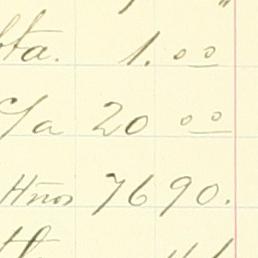 "
ta. 1.00
C/a 20 00
Hnos 7690.